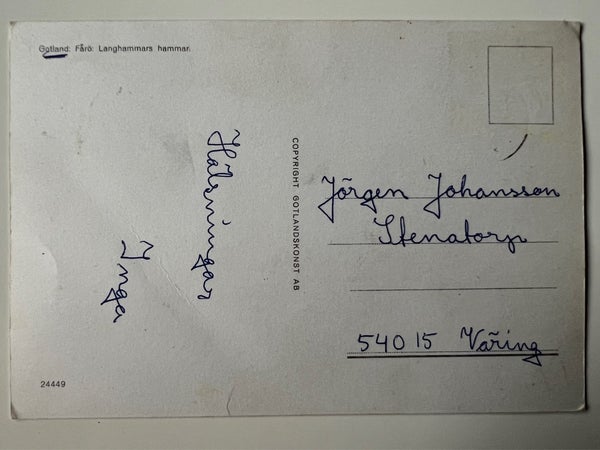 Gotland: Fårö: Langhammars hammar.
Hälsningar
Inga
COPYRIGHT GOTLANDSKONST AB
Jörgen Johansson
Stenatorp
540 15 Väring
24449